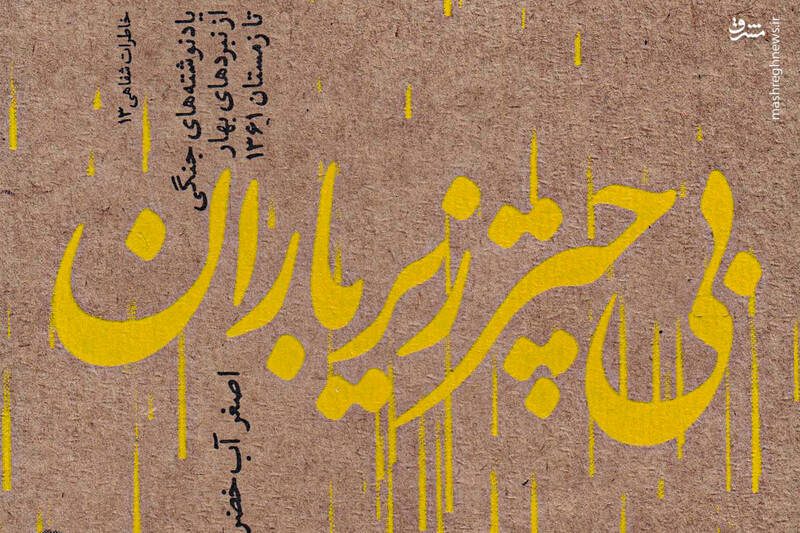 خاطرات شفاهی ۱۳
یادنوشته‌های جنگی
از نبردهای بهار
تا زمستان ۱۳۶۱
بی چتر زیر باران
اصغر آب خضر
مشرق
mashreghnews.ir